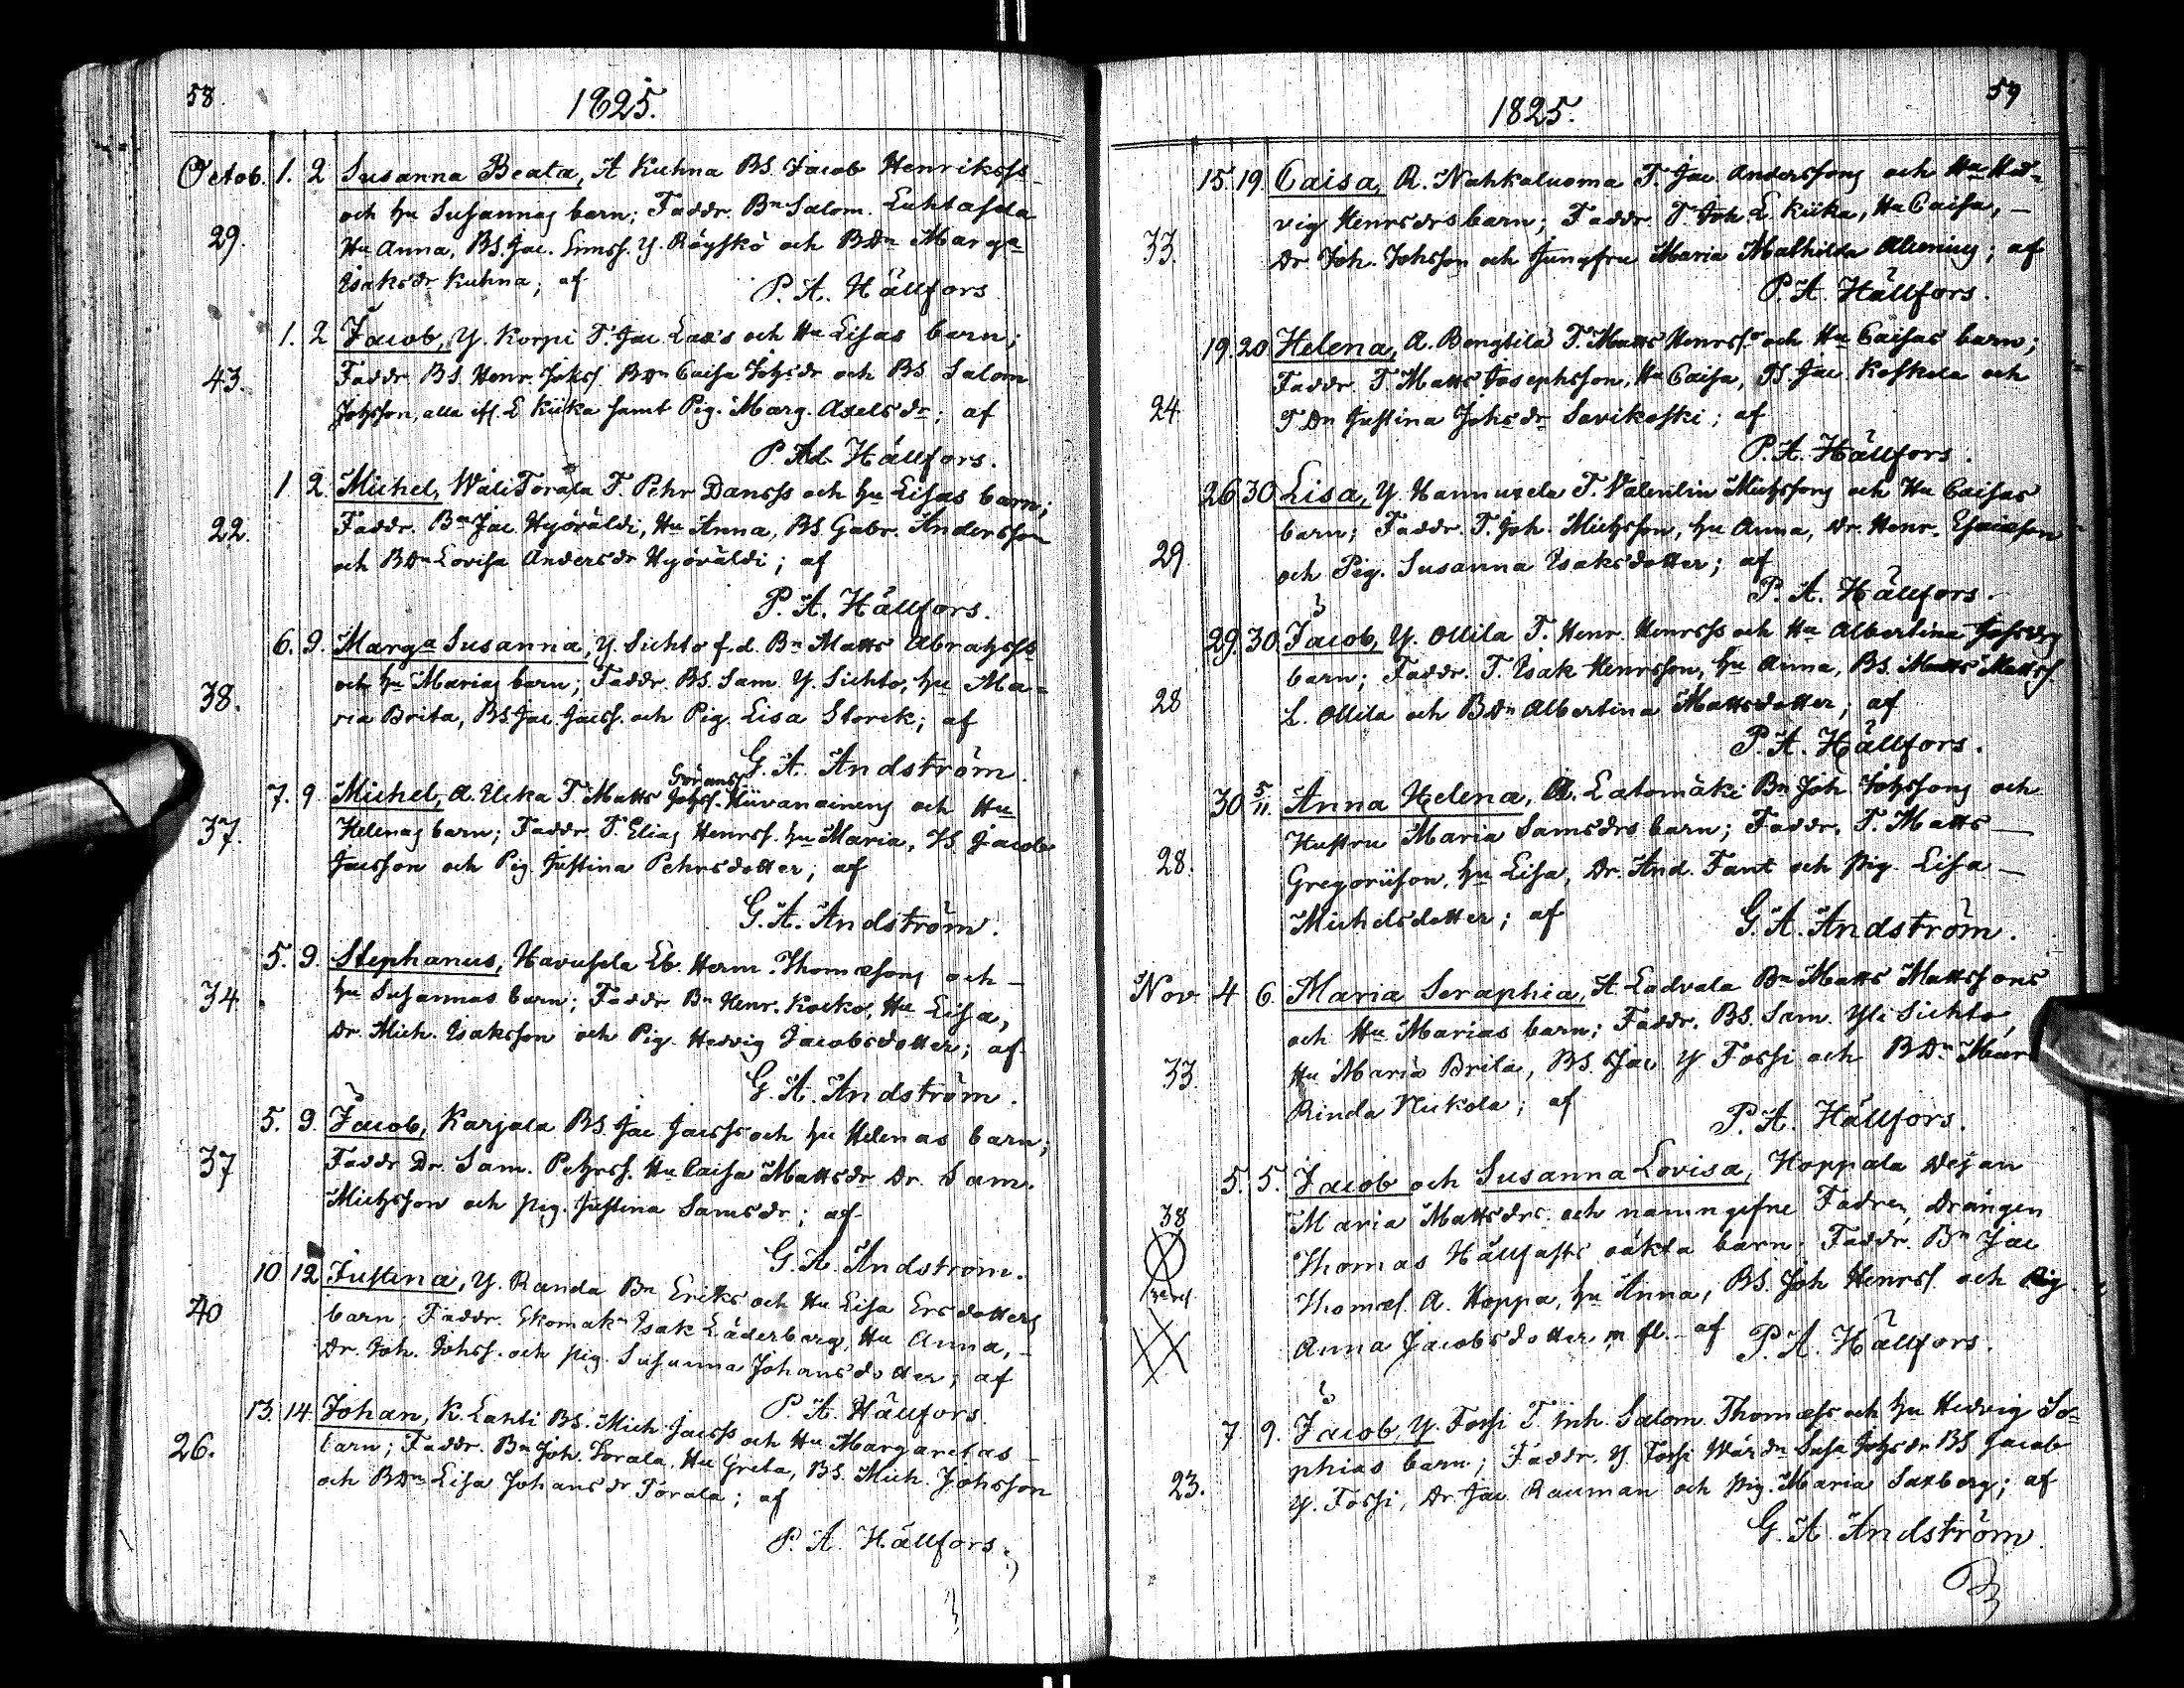 58.
1825.
Octob. 1. 2 Susanna Beata, A Kuhna BS. Jacob Henrikss
och Hu Susannas barn; Faddr. Bn Salom. Luhtasda
29. Hu Anna, BS. Jac. Ermss. Y. Röyskö och BDn Marga
Isaksdr Kuhna; af P. A. Hällfors
1. 2 Jacob, Y. Korpi T. Jac Lax's och Hu Lisas barn;
43. Faddr. BS. Henr. Johss. BDn Caisa Johsdr och BS. Salom
Johsson, alla ifr. L Kiika samt Pig. Marg. Axelsdr; af
P. Ad. Hällfors.
1. 2. Michel, Wali Torala T. Pehr Danss och hu Lisas barn;
22. Faddr. Bn Jac Hyöväldi, Hu Anna, BS. Gabr. Andersson
och BDn Lovisa Andersdr Hyöväldi; af
P. A. Hällfors.
6. 9. Marga Susanna, Y. Sichto f.d. Bn Matts Abrahss
38. och hu Marias barn; Faddr. BS. Sam. Y. Sichto, hu Ma-
ria Brita, BS. Jac. Jacss. och Pig. Lisa Storck; af
G. A. Andström.
Görans
7. 9 Michel, A. Ucka T. Matts Johss. Hiivanainens och Hu
37. Helenas barn; Faddr. T. Elias Henrss. hu Maria, BS. Jacob
Jacsson och Pig. Justina Pehrsdotter; af
G. A. Andström.
5. 9. Stephanus, Havusela Lb. Herm. Thomæsons och
34. hu Susannas barn; Faddr. Bn Henr. Kocko, Hu Lisa,
Dr. Mich. Isaksson och Pig. Hedvig Jacobsdotter; af
G. A. Andström.
5. 9. Jacob, Karjala BS. Jac Jacss och hu Helenas barn;
37 Faddr Dr. Sam. Pehrss. Hu Caisa Mattsdr Dr. Sam.
Michsson och pig. Justina Samsdr; af
G. A. Andström.
10 12 Justina, Y. Randa Bn Eriks och Hu Lisa Ersdotters
40 barn; Faddr. Skomakn Isak Läderberg, Hu Anna,
Dr. Joh. Johss. och pig. Susanna Johansdotter; af
P. A. Hällfors.
13. 14. Johan, K. Lahti BS. Mich. Jacss och Hu Margaretas
26. barn; Faddr. Bn Joh. Torala, Hu Greta, BS. Mich. Johsson
och BDn Lisa Johansdr Torala; af
P. A. Hällfors.
59
1825.
15. 19. Caisa, R. Nahkaluoma T. Jac. Anderssons och Hu Hed-
33. vig Henrsdrs barn; Faddr. T. Joh. L. Kiika, Hu Caisa,
Dr. Joh. Johsson och Jungfru Maria Mathilda Alcenius; af
P. A. Hällfors.
19. 20 Helena, A. Bengtila T. Matts Henrss. och Hu Caisas barn;
24 Faddr. T. Matts Josephsson, Hu Caisa, BS. Jac. Koskela och
TDn Justina Johsdr Savikoski; af
P. A. Hällfors.
26 30 Lisa, Y. Hannuxela T. Valentin Michssons och Hu Caisas
29 barn; Faddr. T. Joh. Michsson, hu Anna, Dr. Henr. Esaiason
och Pig. Susanna Isaksdotter; af
P. A. Hällfors.
29. 30. Jacob, Y. Ollila T. Henr. Henrss och Hu Albertina Johsdrs
28 barn; Faddr. T. Isak Henrsson, hu Anna, BS. Matts Mattss.
L. Ollila och BDn Albertina Mattsdotter; af
P. A. Hällfors.
30 5/11. Anna Helena, A. Latomäki Bn Joh Johssons och
28. Hustru Maria Samsdrs barn; Faddr. T. Matts
Gregoriison, hu Lisa, Dr. And. Fant och pig. Lisa
Michelsdotter; af G. A. Andström.
Nov. 4 6. Maria Seraphia, A. Ladvala Bn Matts Mattssons
och Hu Marias barn; Faddr. BS. Sam. Yli Sichto,
33. Hu Maria Brita, BS. Jac Y Fossi och BDn Mar
Rinda Nickola; af P. A. Hällfors.
5. 5. Jacob och Susanna Lovisa, Hoppala Dejan
38 Maria Mattsdrs och namngifne Fadren, Drängen
Thomas Hällfasts oäkta barn; Faddr. Bn Jac
Thomæs. A. Hoppa, hu Anna, BS. Joh Henrss. och Pig
Anna Jacobsdotter, m fl. af P. A. Hällfors.
7 9. Jacob, Y. Fossi T. Inh. Salom. Thomæss och hu Hedvig So-
23. phias barn; Faddr. Y. Fossi Wärdn Susa Johsdr BS Jacob
Y. Fossi, Dr. Jac. Rauman och pig. Maria Saxberg; af
G. A. Andström.